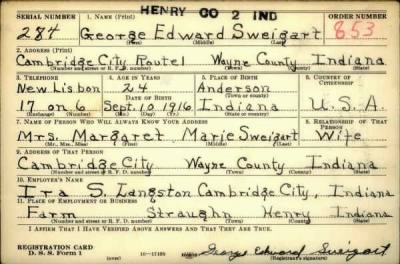 HENRY CO 2 IND
SERIAL NUMBER 1. NAME (Print) ORDER NUMBER
284 George Edward Sweigart 853
(First) (Middle) (Last)
2. ADDRESS (Print)
Cambridge City, Route 1 Wayne County Indiana
(Number and street or R. F. D. number) (Town) (County) (State)
3. TELEPHONE 4. AGE IN YEARS 5. PLACE OF BIRTH 6. COUNTRY OF CITIZENSHIP
New Lisbon 24 Anderson
DATE OF BIRTH (Town or county)
17 on 6 Sept. 10, 1916 Indiana U.S.A.
(Exchange) (Number) (Mo.) (Day) (Yr.) (State or country)
7. NAME OF PERSON WHO WILL ALWAYS KNOW YOUR ADDRESS 8. RELATIONSHIP OF THAT PERSON
Mrs. Margaret Marie Sweigart Wife
(Mr., Mrs., Miss) (First) (Middle) (Last)
9. ADDRESS OF THAT PERSON
Cambridge City Wayne County Indiana
(Number and street or R. F. D. number) (Town) (County) (State)
10. EMPLOYER'S NAME
Ira S. Langston Cambridge City, Indiana
11. PLACE OF EMPLOYMENT OR BUSINESS
Farm Straughn Henry Indiana
(Number and street or R. F. D. number) (Town) (County) (State)
I AFFIRM THAT I HAVE VERIFIED ABOVE ANSWERS AND THAT THEY ARE TRUE.
REGISTRATION CARD
D. S. S. Form 1 16-17105 George Edward Sweigart
(Registrant's signature)